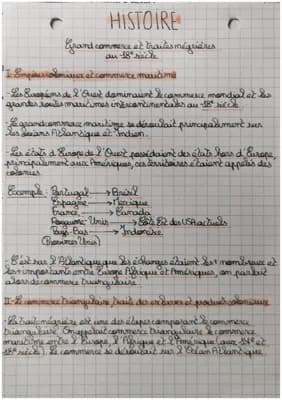 HISTOIRE
Grand commerce et traites négrières
au 18e siècle
I- Empires coloniaux et commerce maritime
- Les Européens de l'Ouest dominaient le commerce mondial et les
grandes routes maritimes intercontinentales au 18e siècle
- Le grand commerce maritime se déroulait principalement sur
les océans Atlantique et Indien.
- Les états d'Europe de l'Ouest possédaient des états hors d'Europe,
principalement aux Amériques, ces territoires étaient appelés des
colonies.
Exemple : Portugal → Brésil
Espagne → Mexique
France → Canada
Royaume-Unis → Côte Est des USA actuels
Pays-Bas → Indonésie
(Provinces Unis)
- C'est sur l'Atlantique que les échanges étaient les nombreux et
les importants entre Europe Afrique et Amériques, on parlait
alors de commerce triangulaire.
II- Le commerce triangulaire traite des esclaves et produits coloniaux
- La traite négrière est une des étapes composant le commerce
triangulaire. On appelait commerce triangulaire le commerce
maritime entre l'Europe, l'Afrique et l'Amérique (aux
siècle). Le commerce se déroulait sur l'Océan Atlantique.